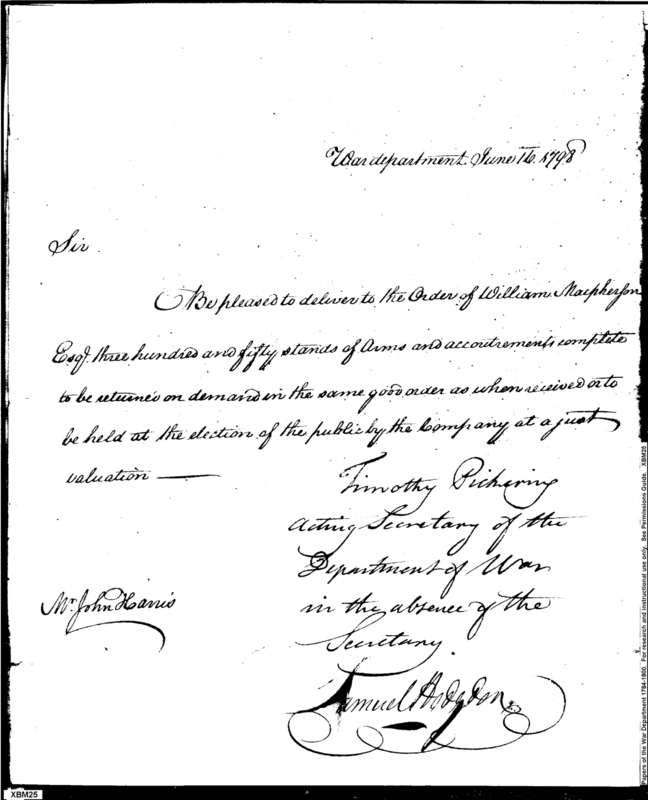 War department June 16. 1798
Sir
Be pleased to deliver to the Order of William Macpherson
Esqr. three hundred and fifty stands of Arms and accoutrements complete
to be returned on demand in the same good order as when received or to
be held at the election of the public by the Company at a just
valuation —
Timothy Pickering
Acting Secretary of the
Department of War
in the absence of the
Secretary.
Mr. John Harris
Samuel Hodgdon
XBM25
Papers of the War Department 1784-1800. For research and instructional use only. See Permissions Guide. XBM25